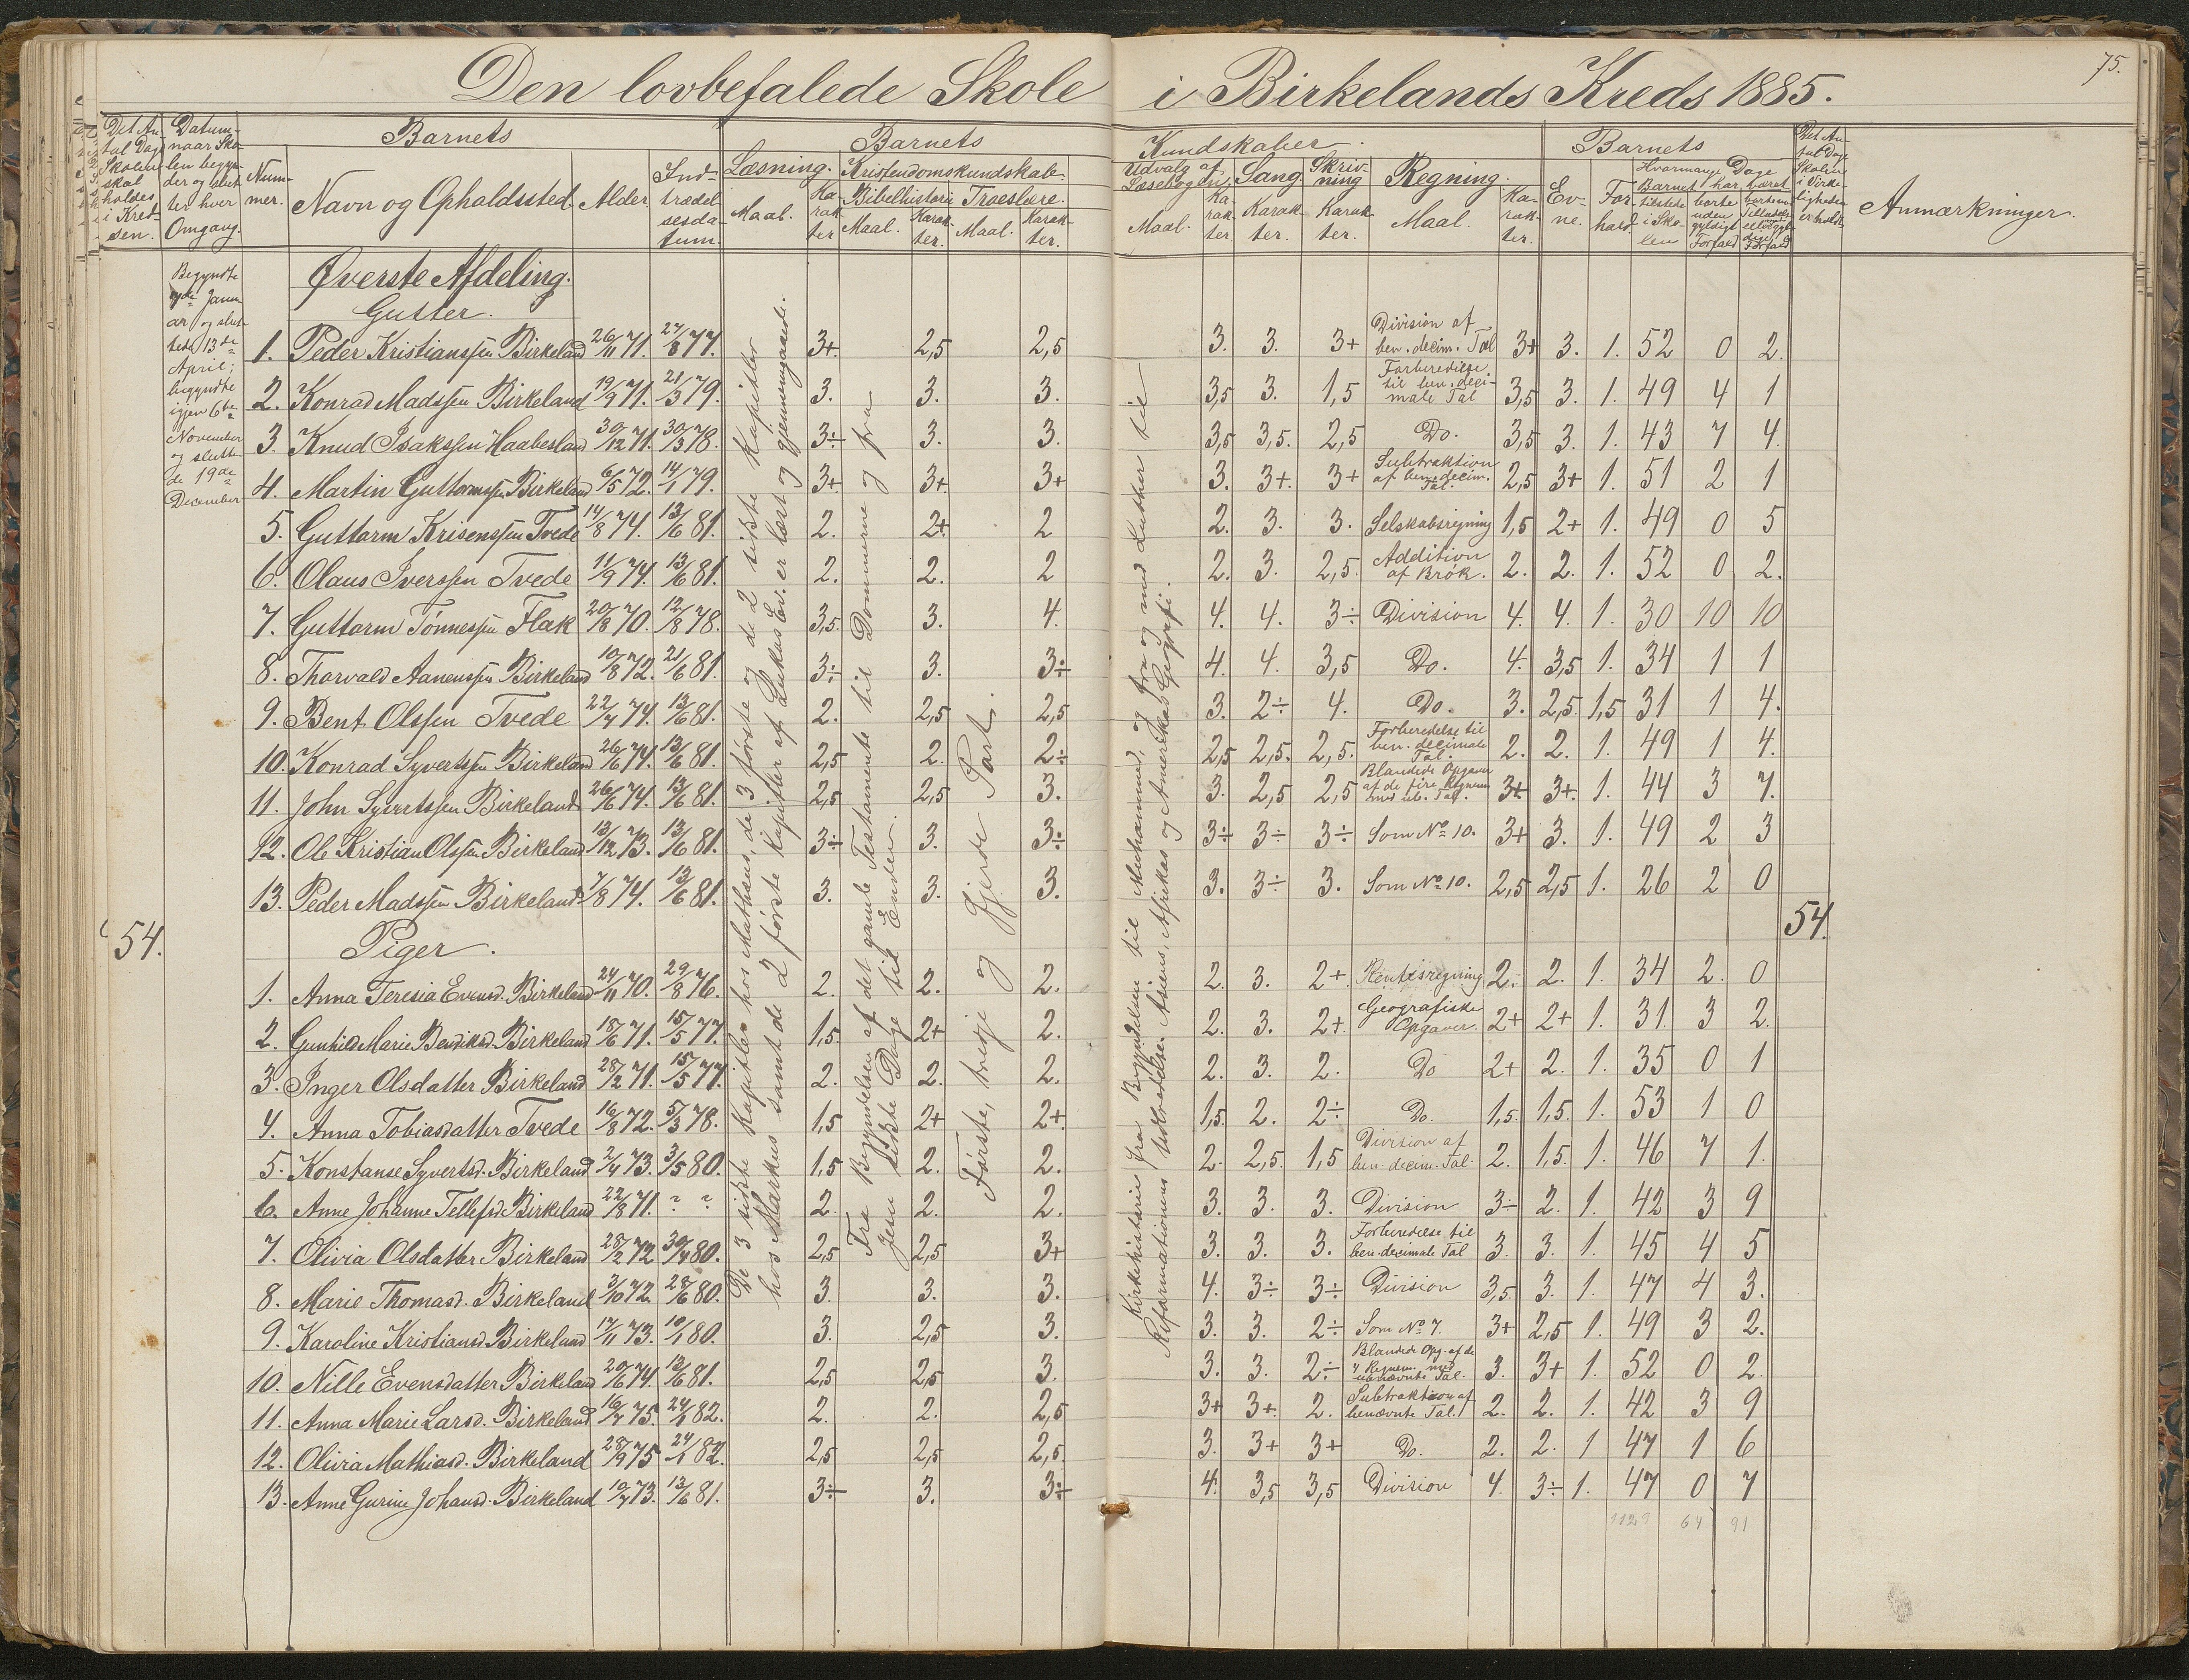 75.
Den lovbefalede Skole i Birkelands Kreds 1885.
Det An-
tal Dage
Skolen
skal
holdes
i Kred-
sen.
Datum-
naar Sko-
len begyn-
der og slut-
ter hver
Omgang.
Barnets
Num-
mer.
Navn og Opholdssted.
Alder.
Ind-
trædel-
sesda-
tum.
Barnets
Læsning.
Maal.
Ka-
rak-
ter
Kristendomskundskab.
Bibelhistorie
Maal.
Karak-
ter.
Troeslære.
Maal.
Karak-
ter.
Kundskaber.
Udvalg af
Læsebogen.
Maal.
Ka-
rak-
ter.
Sang.
Karak-
ter.
Skriv-
ning
Karak-
ter.
Regning.
Maal.
Ka-
rak-
ter.
Barnets
Ev-
ne.
For-
hold.
Hvormange Dage
Barnet har
tilstede
i Sko-
len
borte
uden
gyldigt
Forfald
været
Det An-
tal Dage
Skolen
i Virke-
ligheden
er holdt.
Anmærkninger.
Begyndte
Janu-
ar og slut-
tede 13de
April;
begyndte
igjen 6te
November
og slutte-
de 19de
December
Øverste Afdeling.
Gutter.
1. Peder Kristianssen Birkeland 26/11 71. 27/8 77. 3+. 2,5 2,5 3. 3. 3+ Division af ben. decim. Tal 3+ 3. 1. 52 0 2.
2. Konrad Madssen Birkeland 19/9 71. 21/3 79. 3. 3. 3. 3,5 3. 1,5 Forberedelse til ben. deci- male Tal 3,5 3. 1. 49 4 1
3. Knud Isakssen Haabesland 30/12 71. 30/3 78. 3÷ 3. 3. 3,5 3,5. 2,5 Do. 3,5 3. 1. 43 7 4.
4. Martin Guttormssen Birkeland 6/5 72. 14/1 79. 3+. 3+. 3+ 3. 3+. 3+ Subtraktion af ben. decim. Tal. 2,5 3+ 1. 51 2 1
5. Guttorm Krisenssen Tvede 14/8 74. 13/6 81. 2. 2+. 2 2. 3. 3. Selskabsregning 1,5 2+ 1. 49 0 5
6. Olaus Iverssen Tvede 11/9 74. 13/6 81. 2. 2. 2 2. 3. 2,5. Addition af Brök. 2. 2. 1. 52 0 2.
7. Guttorm Tönnessen Flak 20/8 70. 12/8 78. 3,5. 3. 4. 4. 4. 3÷ Division 4. 4. 1. 30 10 10
8. Thorvald Aanenssen Birkeland 10/8 72. 21/6 81. 3÷ 3. 3÷ 4. 4. 3,5 Do. 4. 3,5 1. 34 1 1
9. Bent Olssen Tvede 22/7 74. 13/6 81. 2. 2,5 2,5 3. 2÷ 4. Do. 3. 2,5. 1,5 31 1 4.
10. Konrad Syvertssen Birkeland 26/6 74. 13/6 81. 2,5 2. 2÷ 2,5 2,5. 2,5. Forberedelse til ben. decimale Tal. 2. 2. 1. 49 1 4.
11. John Syvertssen Birkeland 26/6 74. 13/6 81. 2,5 2,5 3. 3. 2,5 2,5 Blandede Opgaver af de fire Regnem. med ub. Tal. 3+ 3+. 1. 44 3 7.
12. Ole Kristian Olssen Birkeland 13/12 73. 13/6 81. 3÷ 3. 3÷ 3÷ 3÷ 3÷ Som No 10. 3+ 3. 1. 49 2 3
13. Peder Madssen Birkeland 7/8 74. 13/6 81. 3. 3. 3. 3. 3÷ 3. Som No 10. 2,5 2,5 1. 26 2 0
54.
54.
Piger.
1. Anna Teresia Evensd. Birkeland 24/11 70. 29/8 76. 2. 2. 2. 2. 3. 2+. Rentesregning 2. 2. 1. 34 2. 0
2. Gunhild Marie Bendiksd. Birkeland 18/6 71. 15/5 77. 1,5. 2+ 2. 2. 3. 2+. Geografiske Opgaver. 2+ 2+ 1. 31. 3 2.
3. Inger Olsdatter Birkeland 28/2 71. 15/5 77. 2. 2. 2. 2. 3. 2. Do 2+ 2. 1. 35 0 1
4. Anna Tobiasdatter Tvede 16/8 72. 5/3 78. 1,5 2+ 2+. 1,5. 2. 2÷ Do. 1,5. 1,5. 1. 53 1 0
5. Konstanse Syvertsd. Birkeland 2/4 73. 3/5 80. 1,5 2. 2. 2. 2,5. 1,5 Division af ben. decim. Tal. 2. 1,5. 1. 46 7 1.
6. Anne Johanne Tellefsd. Birkeland 22/8 71. ? ? 2. 2. 2. 3. 3. 3. Division 3÷ 2. 1. 42 3 9
7. Olivia Olsdatter Birkeland 28/2 72 30/4 80. 2,5 2,5 3+ 3. 3. 3. Forberedelse til ben. decimale Tal 3. 3. 1. 45 4 5
8. Marie Thomasd. Birkeland 3/10 72. 28/6 80. 3. 3. 3. 4. 3÷ 3÷ Division 3,5. 3. 1. 47 4 3.
9. Karoline Kristiansd. Birkeland 17/11 73. 10/1 80. 3. 2,5 3. 3. 3. 2÷ Som No 7. 3+ 2,5 1. 49 3 2.
10. Nille Evensdatter Birkeland 20/6 74. 13/6 81. 2,5 2,5 3. 3. 3. 2÷ Blandede Opg. af de 4 Regnem. med ubenævnte Tal. 3. 3+ 1. 52 0 2.
11. Anna Marie Larsd. Birkeland 16/7 75. 24/1 82. 2. 2. 2,5 3+ 3+. 2. Subtraktion af benævnte Tal. 2. 2. 1. 42 3 9
12. Olivia Mathiasd. Birkeland 28/9 75 24/1 82. 2,5 2,5 2,5. 3. 3+ 3+ Do. 2. 2. 1 47 1 6
13. Anne Gurine Johansd. Birkeland 10/7 73. 13/6 81. 3÷ 3. 3÷ 4. 3,5 3,5 Division 4. 3÷ 1. 47 0 7
1129 64 91
De 3 sidste Kapitler hos Mathæus, de 3 første og de 2 sidste Kapitler
hos Markus samt de 2 første Kapitler af Lukas Ev. er læst og gjennemgaaede.
Fra Begyndelsen af det gamle Testamente til Dommerne og fra
Jesu sidste Dage til Enden.
Første, tredje og fjerde Part.
Kirkehistorie fra Begyndelsen til Muhammed, og fra og med Luther til
Reformationens Udbredelse. Asiens, Afrikas og Amerikas Geografi.